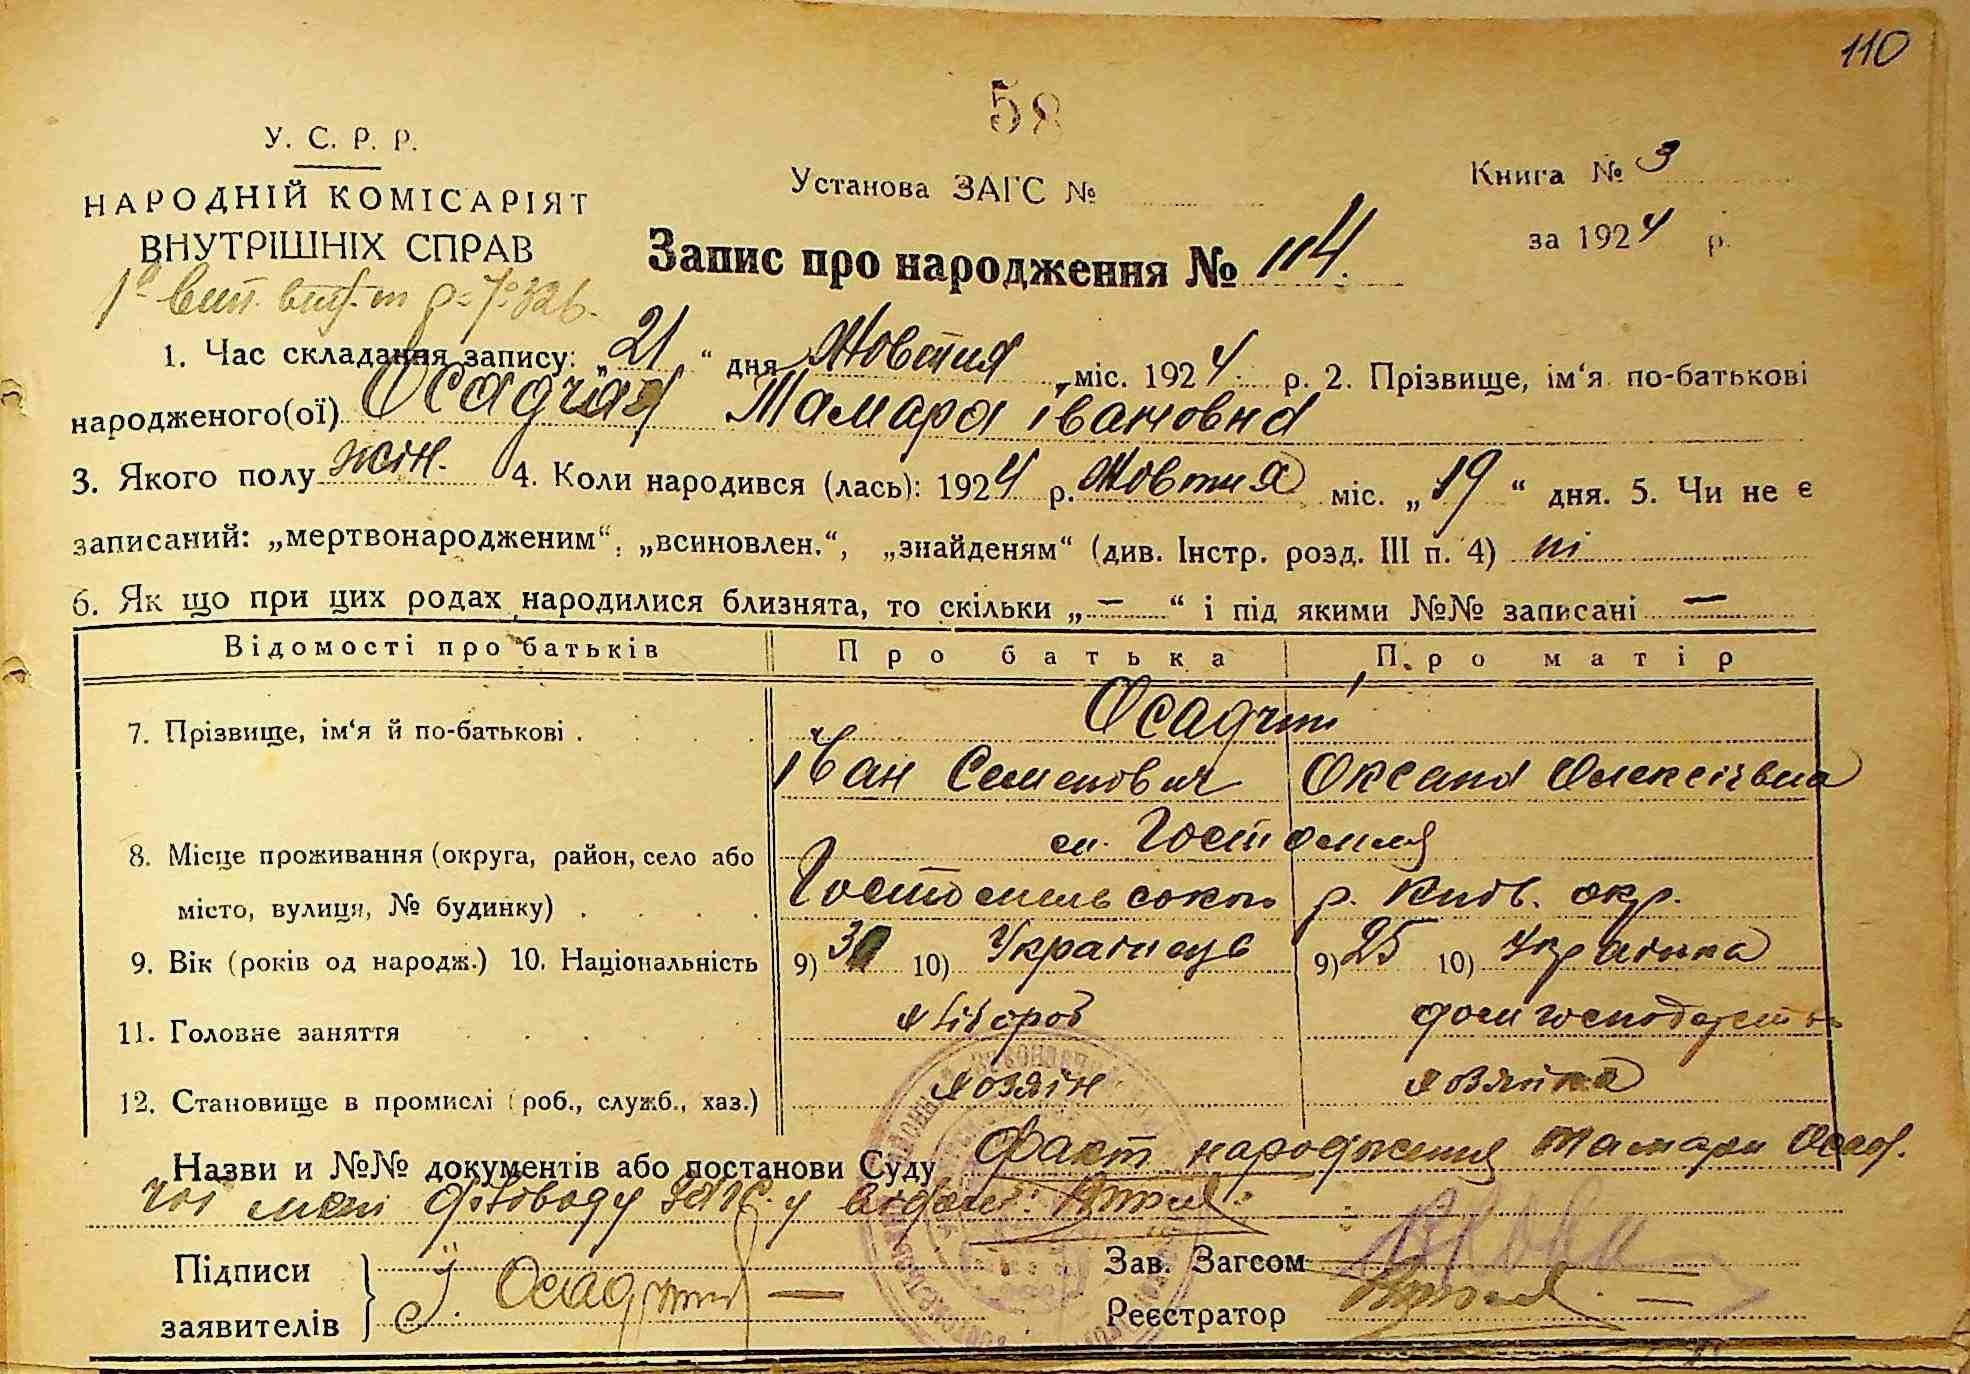 110
58
У. С. Р. Р.
НАРОДНІЙ КОМІСАРІЯТ
ВНУТРІШНІХ СПРАВ
Установа ЗАГС №
Книга № 3
за 1924 р.
Запис про народження № 114.
1. Час складання запису: „21“ дня Жовтня міс. 1924 р. 2. Прізвище, ім‘я по-батькові
народженого(ої) Осадчая Тамара Івановна
3. Якого полу жін. 4. Коли народився (лась): 1924 р. Жовтня міс. „19“ дня. 5. Чи не є
записаний: „мертвонародженим“, „всиновлен.“, „знайденям“ (див. Інстр. розд. III п. 4) ні
6. Як що при цих родах народилися близнята, то скільки „—“ і під якими №№ записані —
Відомості про батьків Про батька Про матір
7. Прізвище, ім‘я й по-батькові . Осадчі
Іван Семенович Оксана Олексієвна
8. Місце проживання (округа, район, село або м. Гостомля
місто, вулиця, № будинку) Гостомельського р. Київ. окр.
9. Вік (років од народж.) 10. Національність 9) 30 10) Українець 9) 25 10) Українка
11. Головне заняття хлібороб дом господарство
12. Становище в промислі (роб., служб., хаз.) хозяін хозяйка
Назви и №№ документів або постанови Суду Факт народження Тамари Осад.
чої мені
Підписи
заявителів } І. Осадчий —
Зав. Загсом
Реєстратор